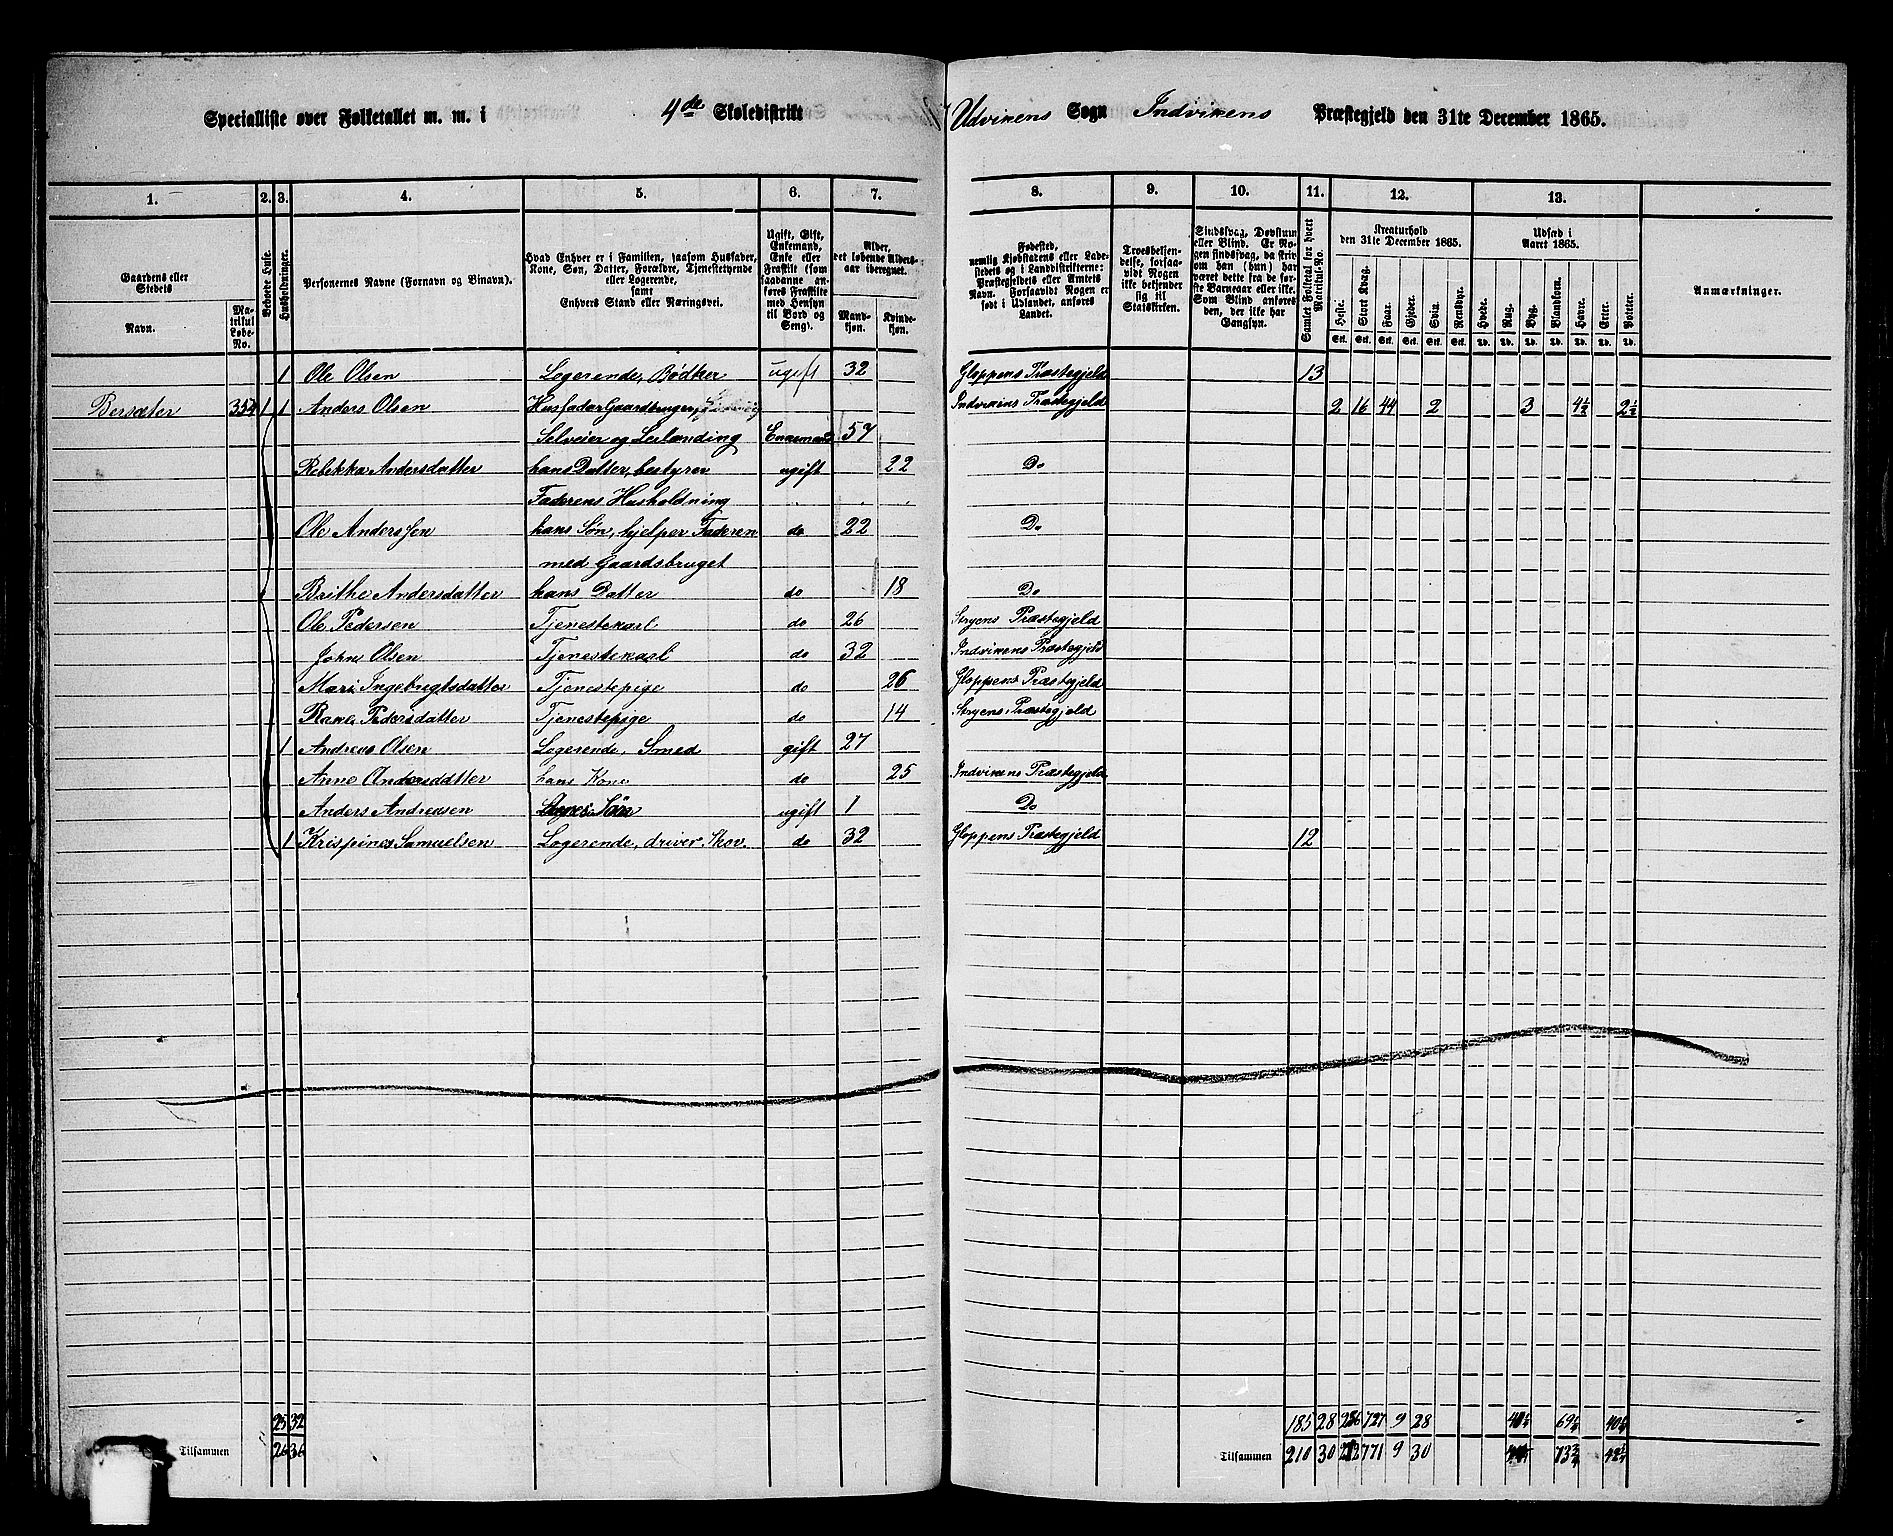 Specialliste over Folketallet m. m. i 4de Skoledistrikt Udvikens Sogn Indvikens Præstegjeld den 31te December 1865.
1. 2. 3. 4. 5. 6. 7. 8. 9. 10. 11. 12. 13.
Gaardens eller Stedets Navn.
Matrikul Løbe-No.
Beboede Huse.
Husholdninger.
Personernes Navne (Fornavn og Binavn).
Hvad Enhver er i Familien, saasom Husfader, Kone, Søn, Datter, Forældre, Tjenestetyende eller Logerende, samt Enhvers Stand eller Næringsvei.
Ugift, Gift, Enkemand, Enke eller Fraskilt (som saadanne anføres Fraskilte med Hensyn til Bord og Seng).
Alder, det løbende Alders-aar iberegnet.
Mandkjøn. Kvindekjøn.
Fødested, nemlig Kjøbstadens eller Ladestedets og i Landdistrikterne: Præstegjeldets eller Amtets Navn. Forsaavidt Nogen er født i Udlandet, anføres Landet.
Troesbekjendelse, forsaavidt Nogen ikke bekjender sig til Statskirken.
Sindssvag, Døvstum eller Blind. Er Nogen sindssvag, da skriv om han (hun) har været dette fra de første Barneaar eller ikke. Som Blind anføres den, der ikke har Gangsyn.
Samlet Folketal for hvert Matrikul-No.
Kreaturhold den 31te December 1865.
Heste. Stort Kvæg. Faar. Gjeder. Svin. Rensdyr.
Udsæd i Aaret 1865.
Hvede. Rug. Byg. Blandkorn. Havre. Erter. Poteter.
Anmærkninger.
Stk. Stk. Stk. Stk. Stk. Stk. Td. Td. Td. Td. Td. Td. Td.
1 Ole Olsen Logerende, Bødker ugift 32 Gloppens Præstegjeld 13
Bersæter 354 1 1 Anders Olsen Husfader Gaardbruger, Indvikens Præstegjeld 2 16 44 2 3 4½ 2½
Selveier og Leilænding Enkemand 57
Rebekka Andersdatter hans Datter, bestyrer ugift 22 Do
Faderens Husholdning
Ole Anderssen hans Søn, hjelper Faderen do 22 Do
med Gaardsbruget
Brithe Andersdatter hans Datter do 18 Do
Ole Pedersen Tjenestekarl do 26 Stryens Præstegjeld
John Olsen Tjenestekarl do 32 Indvikens Præstegjeld
Mari Ingebrigtsdatter Tjenestepige do 26 Gloppens Præstegjeld
Pedersdatter Tjenestepige do 14 Stryens Præstegjeld
1 Andreas Olsen Logerende, Smed gift 27
Anne Andersdatter hans Kone do 25 Indvikens Præstegjeld
Anders Andreasen Søn ugift 1 Do
1 Krispines Samuelsen Logerende, driver Skov. do 32 Gloppens Præstegjeld 12
25 32 185 28 727 9 28 40½
Tilsammen 26 36 Tilsammen 210 30 771 9 30